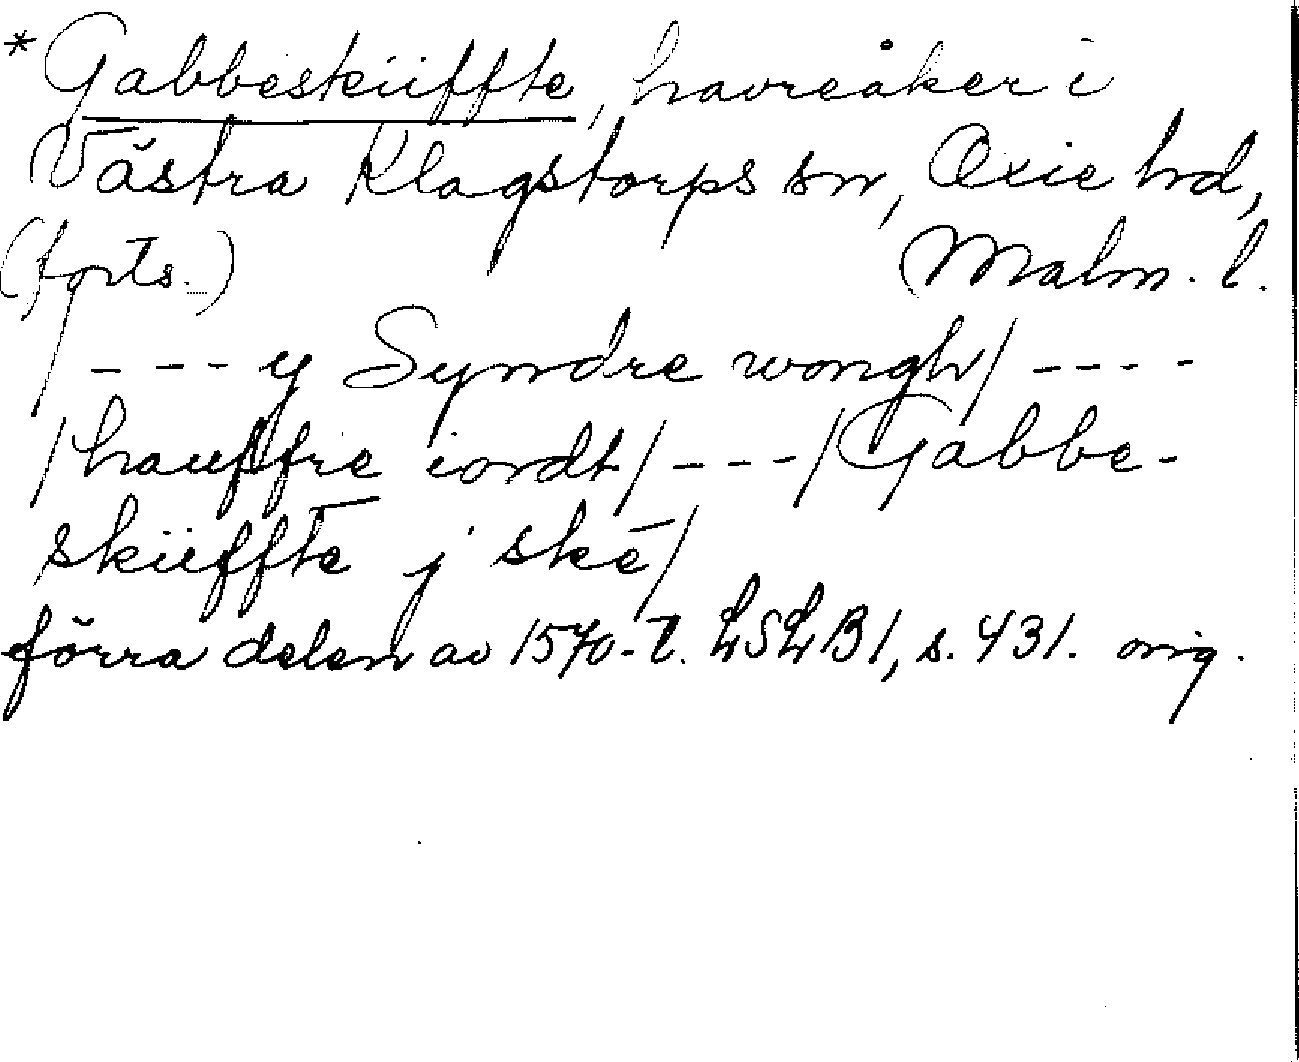 *Gabbeskiiffte, havreåker i
Västra Klagstorps sn, Oxie hd,
(forts.) Malm. l.
/ - - - y Syndre wongh/ - - - -
/hauffre iordt/ - - - /Gabbe-
skiiffte j ske/
förra delen av 1570-t. LSLB1, s. 431. orig.